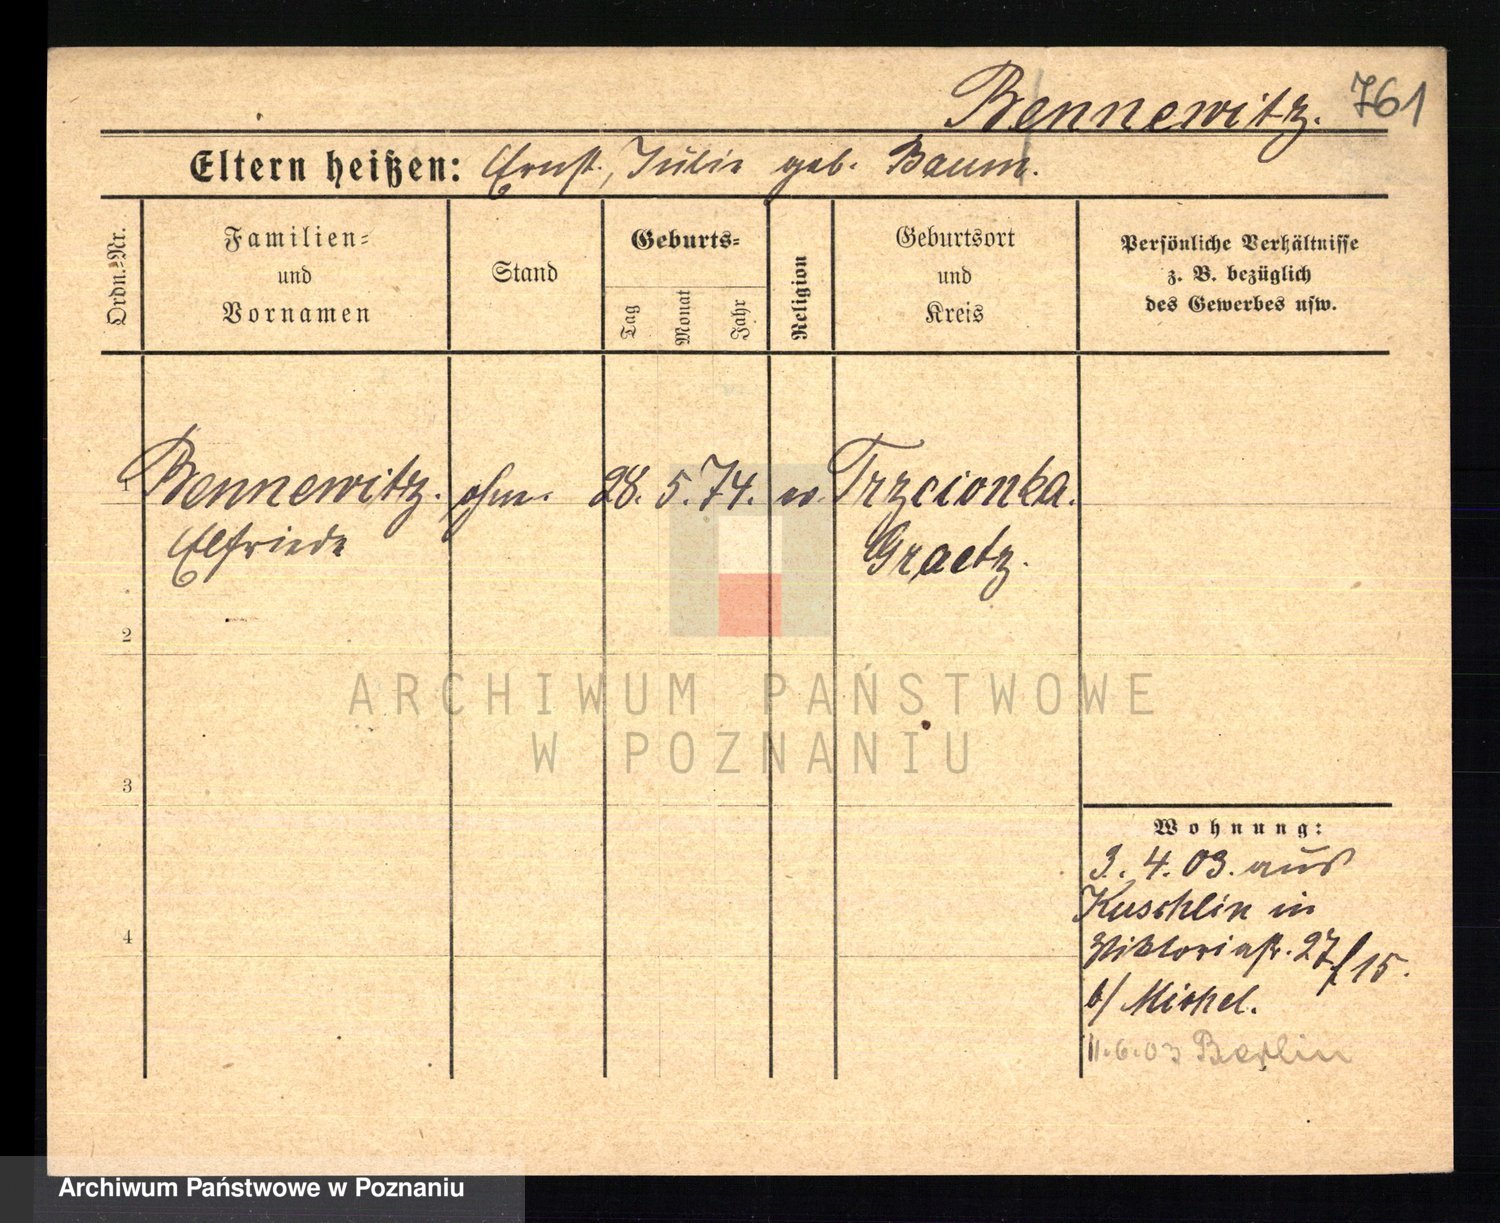 Bennewitz. 761
Eltern heißen: Ernst, Julie geb. Baum.
Ordn.=Nr.
Familien=
und
Vornamen
Stand
Geburts=
Tag
Monat
Jahr
Religion
Geburtsort
und
Kreis
Persönliche Verhältnisse
z. B. bezüglich
des Gewerbes usw.
1 Bennewitz. ohne. 28. 5. 74. ev. Trzcionka.
Elfriede Graetz.
2
3
4
Wohnung:
3. 4. 03. aus
Kuschlin in
Viktoriastr. 27
15.
b/ Michel.
11.6.03 Berlin
ARCHIWUM PAŃSTWOWE
W POZNANIU
Archiwum Państwowe w Poznaniu